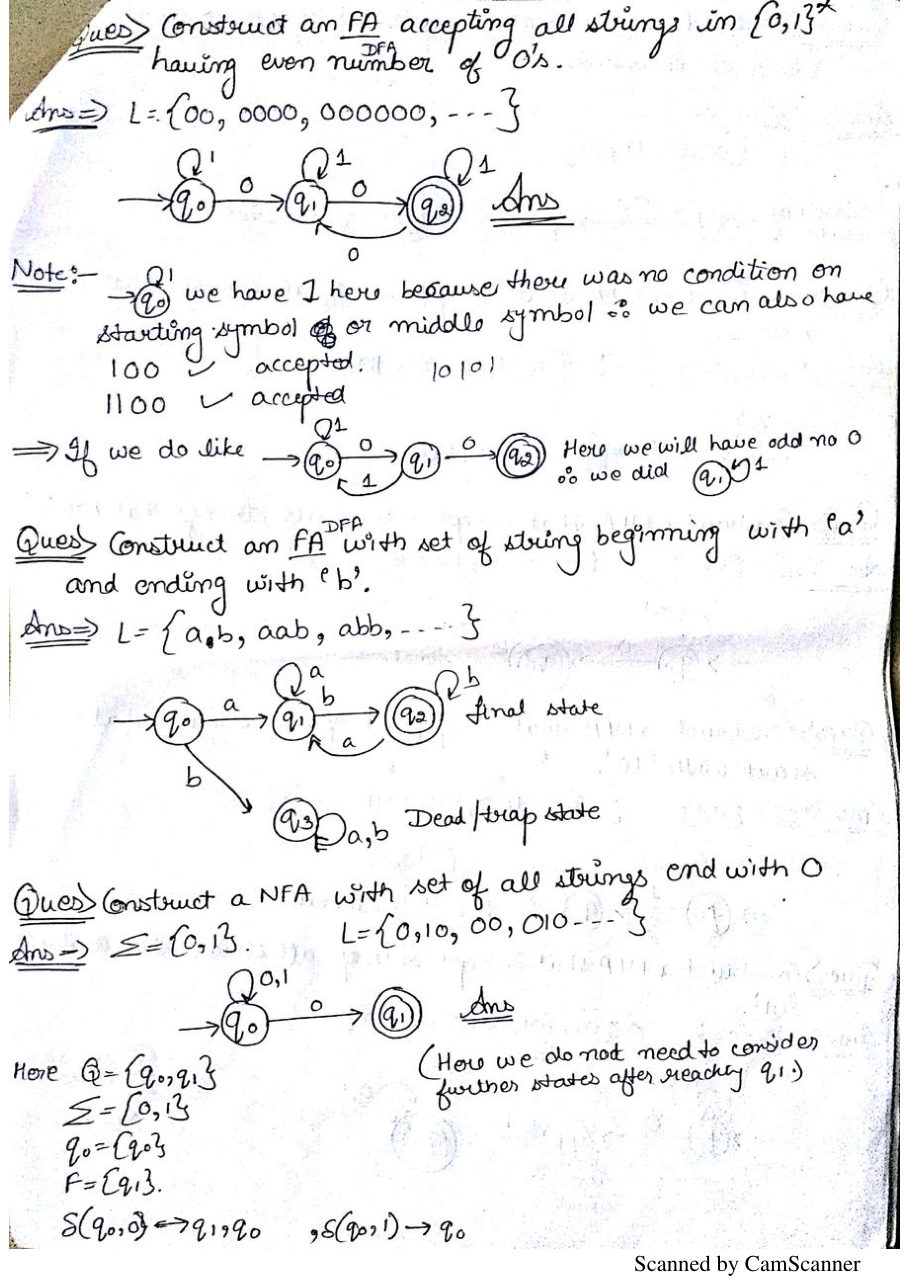 Ques> Construct an FA accepting all strings in {0,1}*
DFA
having even number of 0's.
Ans=> L={00, 0000, 000000, ---}
1 1 1
q0 0 q1 0 q2 Ans
0
Note:- 1
q0 we have 1 here because there was no condition on
starting symbol or middle symbol ∴ we can also have
100 ✓ accepted. 10101
1100 ✓ accepted
=> If we do like 1 q0 0 q1 0 q2 1 Here we will have odd no 0
∴ we did q1 1
Ques> Construct an FA DFA with set of string beginning with 'a'
and ending with 'b'.
Ans=> L= {a,b, aab, abb, ----}
a b
q0 a q1 b q2 final state
a
b
q3 a,b Dead/trap state
Ques> Construct a NFA with set of all strings end with 0
Ans-> Σ={0,1}. L={0,10, 00, 010---}
0,1
q0 0 q1 Ans
(Here we do not need to consider
further states after reachey q1.)
Here Q={q0,q1}
Σ={0,1}
q0={q0}
F={q1}.
δ(q0,0)→q1,q0 ,δ(q0,1)→q0
Scanned by CamScanner